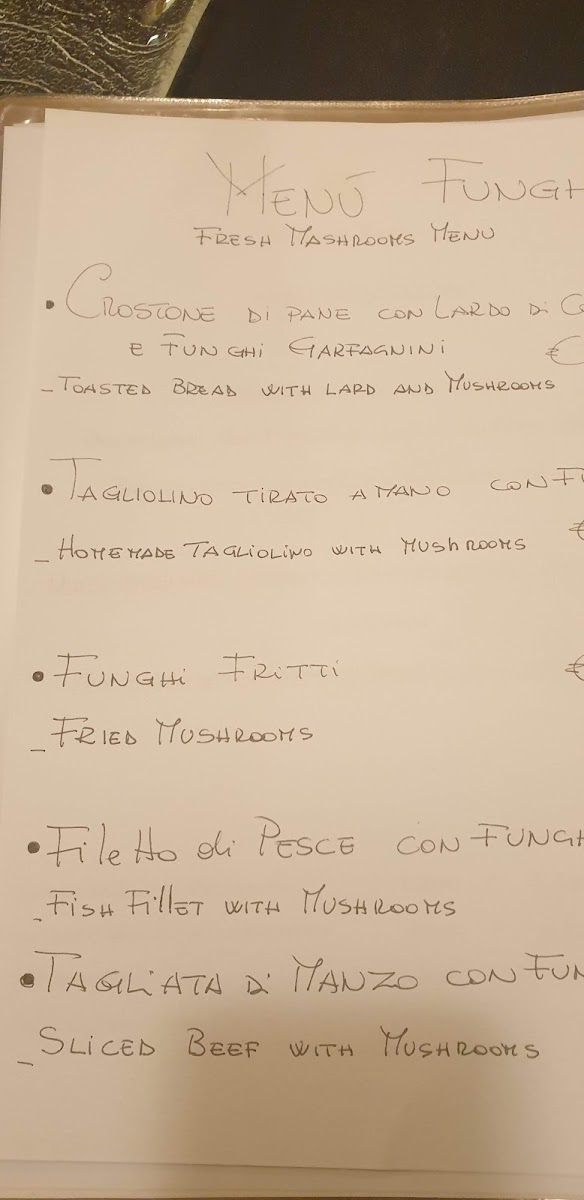 MENÙ FUNGH
FRESH MASHROOMS MENU
• CROSTONE DI PANE CON LARDO DI
E FUNGHI GARFAGNINI €
- TOASTED BREAD WITH LARD AND MUSHROOMS
• TAGLIOLINO TIRATO A MANO CON FU
€
- HOMEMADE TAGLIOLINO WITH MUSHROOMS
• FUNGHI FRITTI €
- FRIED MUSHROOMS
• Filetto di PESCE CON FUNGH
- FISH FILLET WITH MUSHROOMS
• TAGLIATA DI MANZO CON FUN
- SLICED BEEF WITH MUSHROOMS